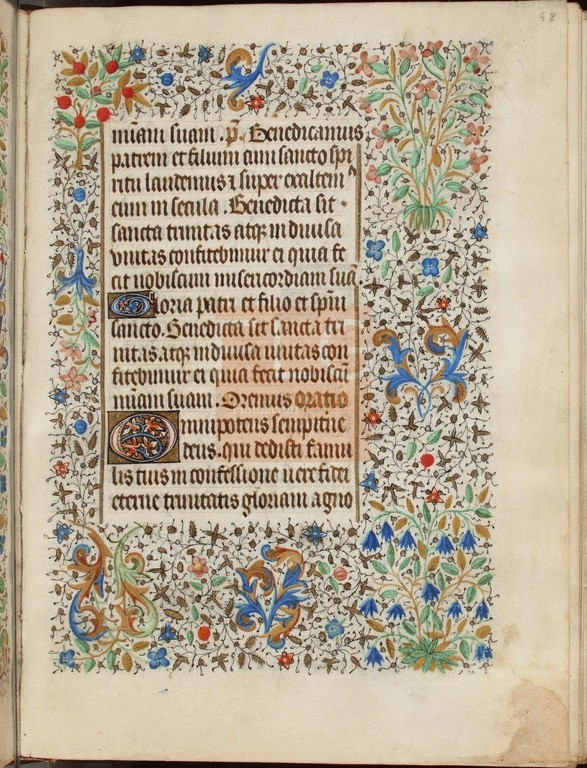 58
miam suam . p̃. Benedicamus
patrem et filium cum sancto spi
ritu laudemus ⁊ super exaltem
eum in secula . Benedicta sit
sancta trinitas atq₃ indiuisa
unitas confitebimur ei quia fe
cit nobiscum misericordiam suā
Gloria patri et filio et spūi
sancto. Benedicta sit sancta tri
nitas atq₃ indiuisa unitas con
fitebimur ei quia fecit nobiscū
miam suam . Oremus oratio
Omnipotens sempiterne
deus . qui dedisti famu
lis tuis in confessione uere fidei
eterne trinitatis gloriam agno